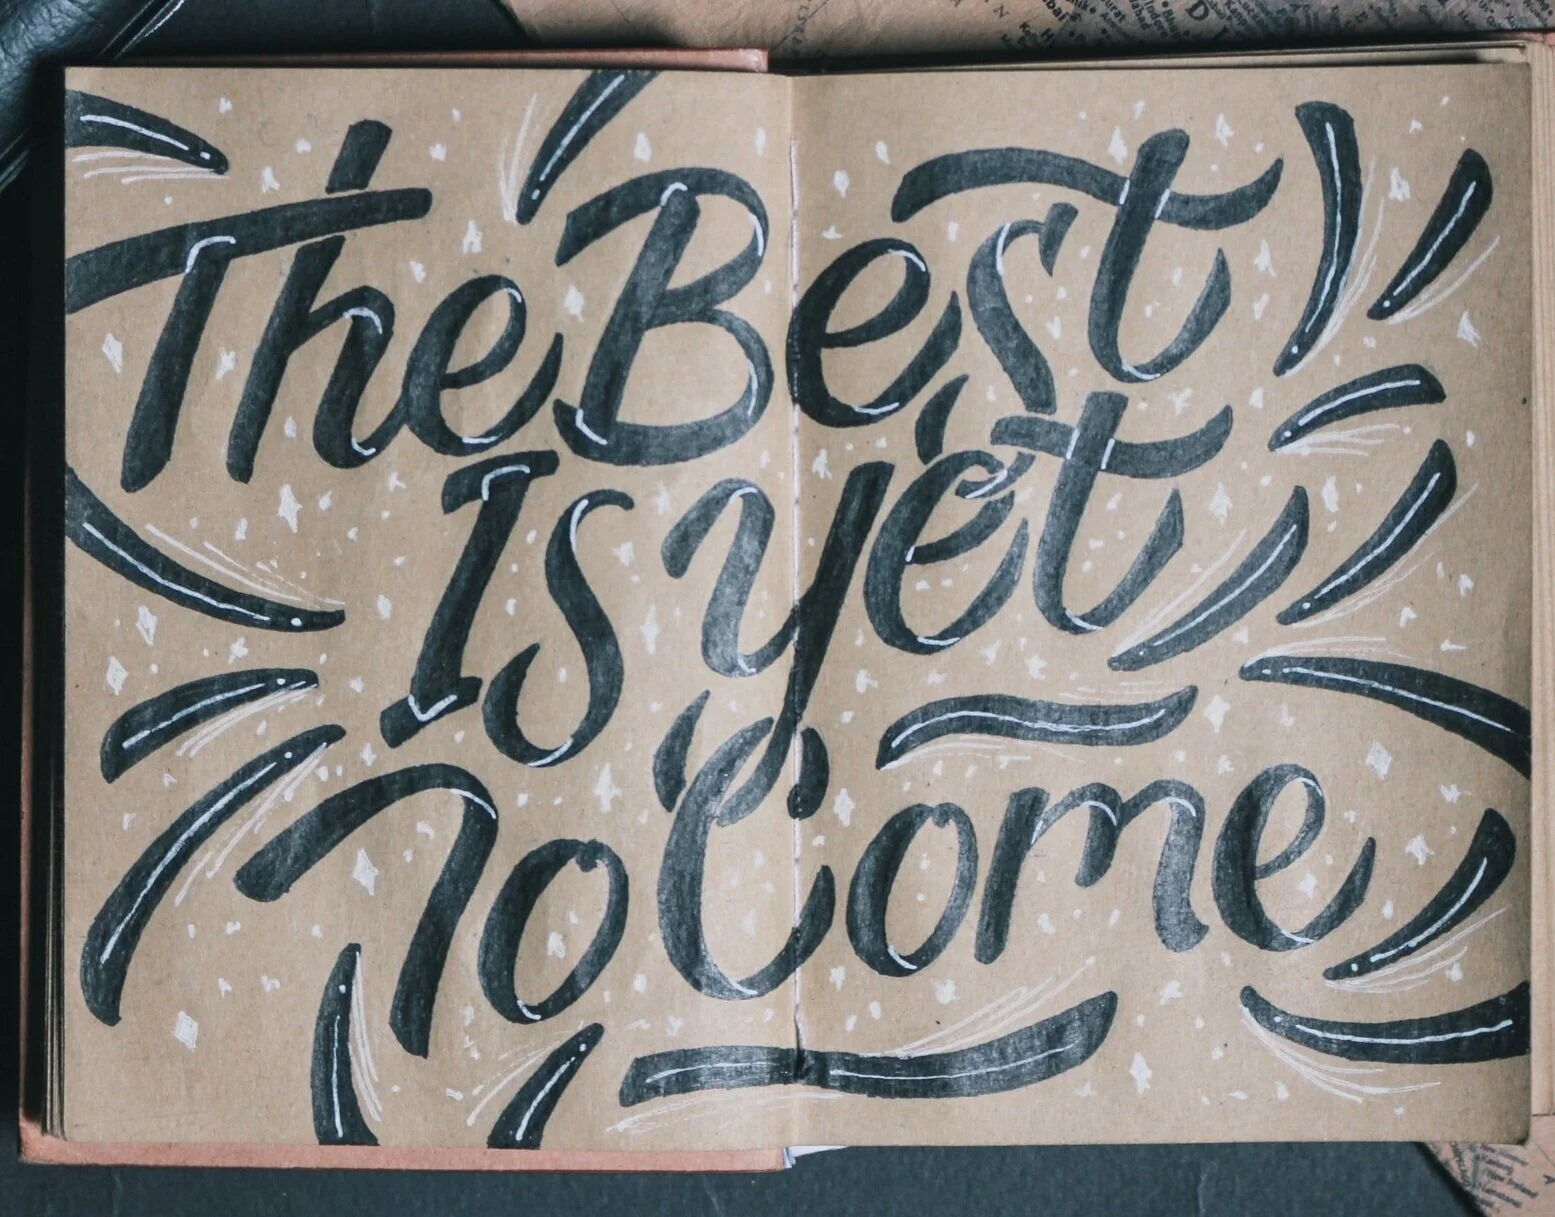 The Best
Is yet
To Come